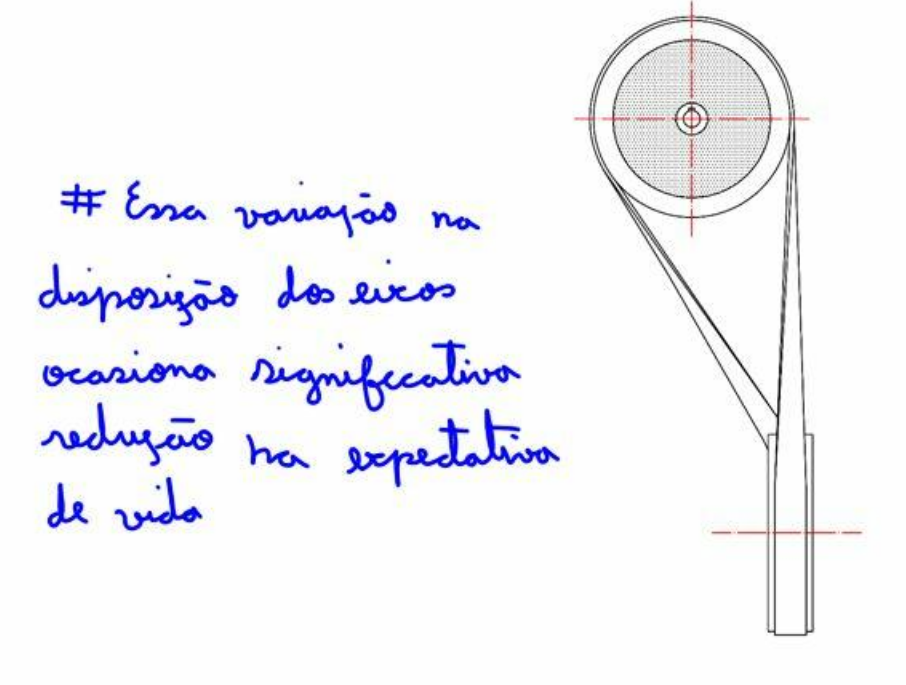 # Essa variação na
disposição dos eixos
ocasiona significativa
redução na expectativa
de vida